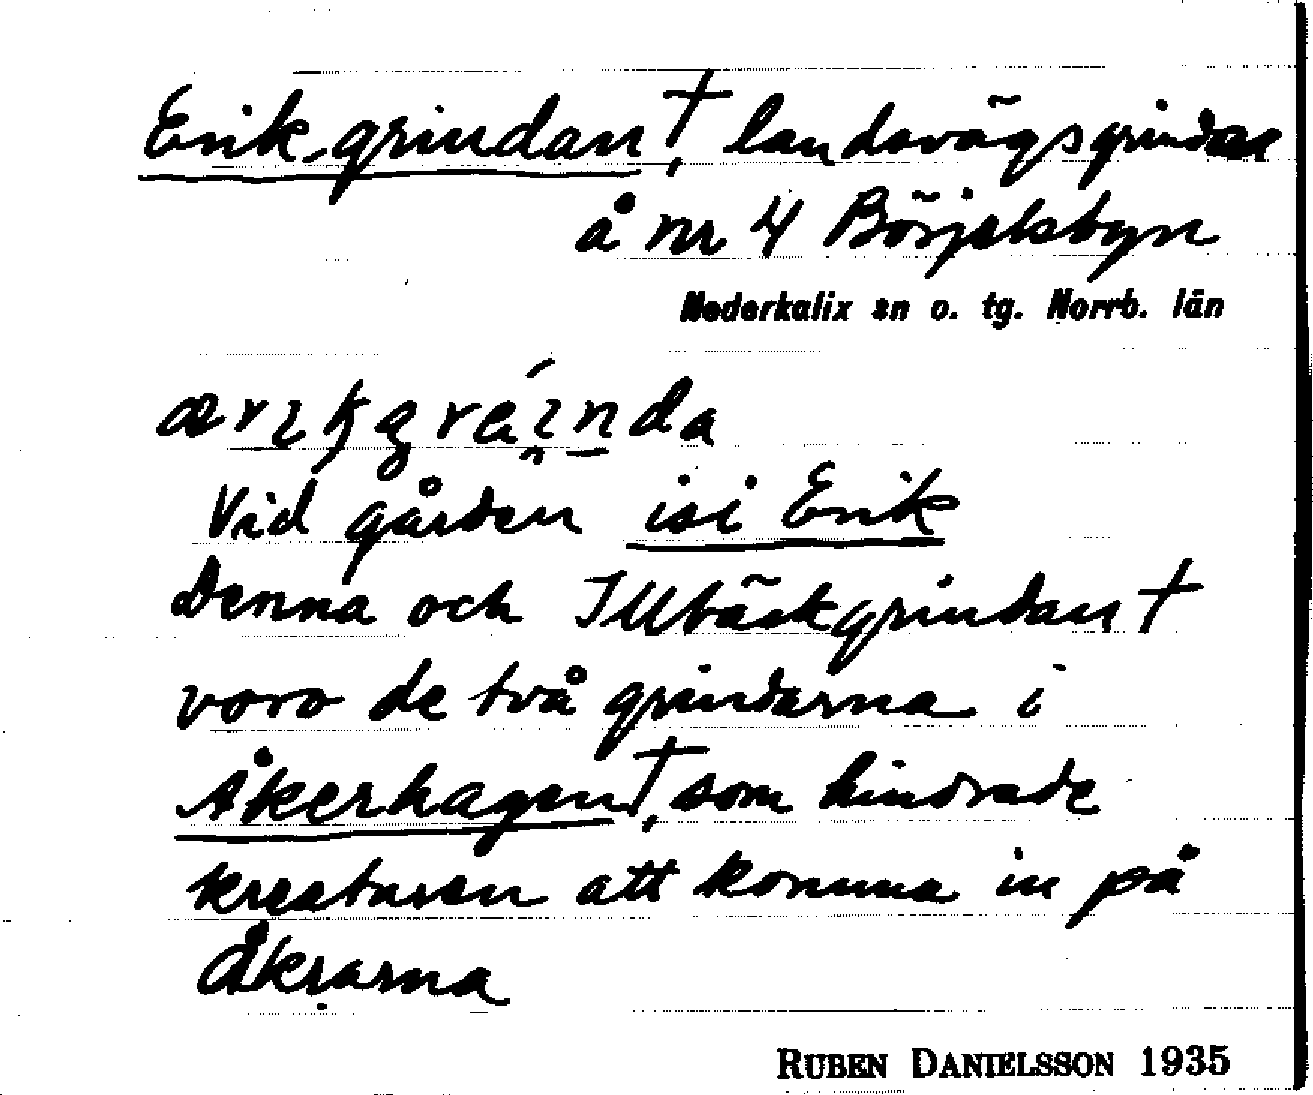 Erik-grindan†, landsvägsgrindar
å nr 4 Börjelsbyn
Nederkalix sn o. tg. Norrb. län
ærɩkgrèɩnda
Vid gården isi Erik
Denna och Illbäckgrindan†
voro de två grindarna i
Åkerhagen†, som hindrade
kreaturen att komma in på
åkrarna
RUBEN DANIELSSON 1935